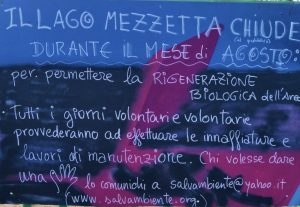 IL LAGO MEZZETTA CHIUDE
(al pubblico)
DURANTE IL MESE di AGOSTO:
per permettere la RIGENERAZIONE
BIOLOGICA dell'Area
• Tutti i giorni volontari e volontarie
provvederanno ad effettuare le innaffiature e
lavori di manutenzione. Chi volesse dare
una lo comunichi a salvambiente@yahoo.it
(www.salvambiente.org)